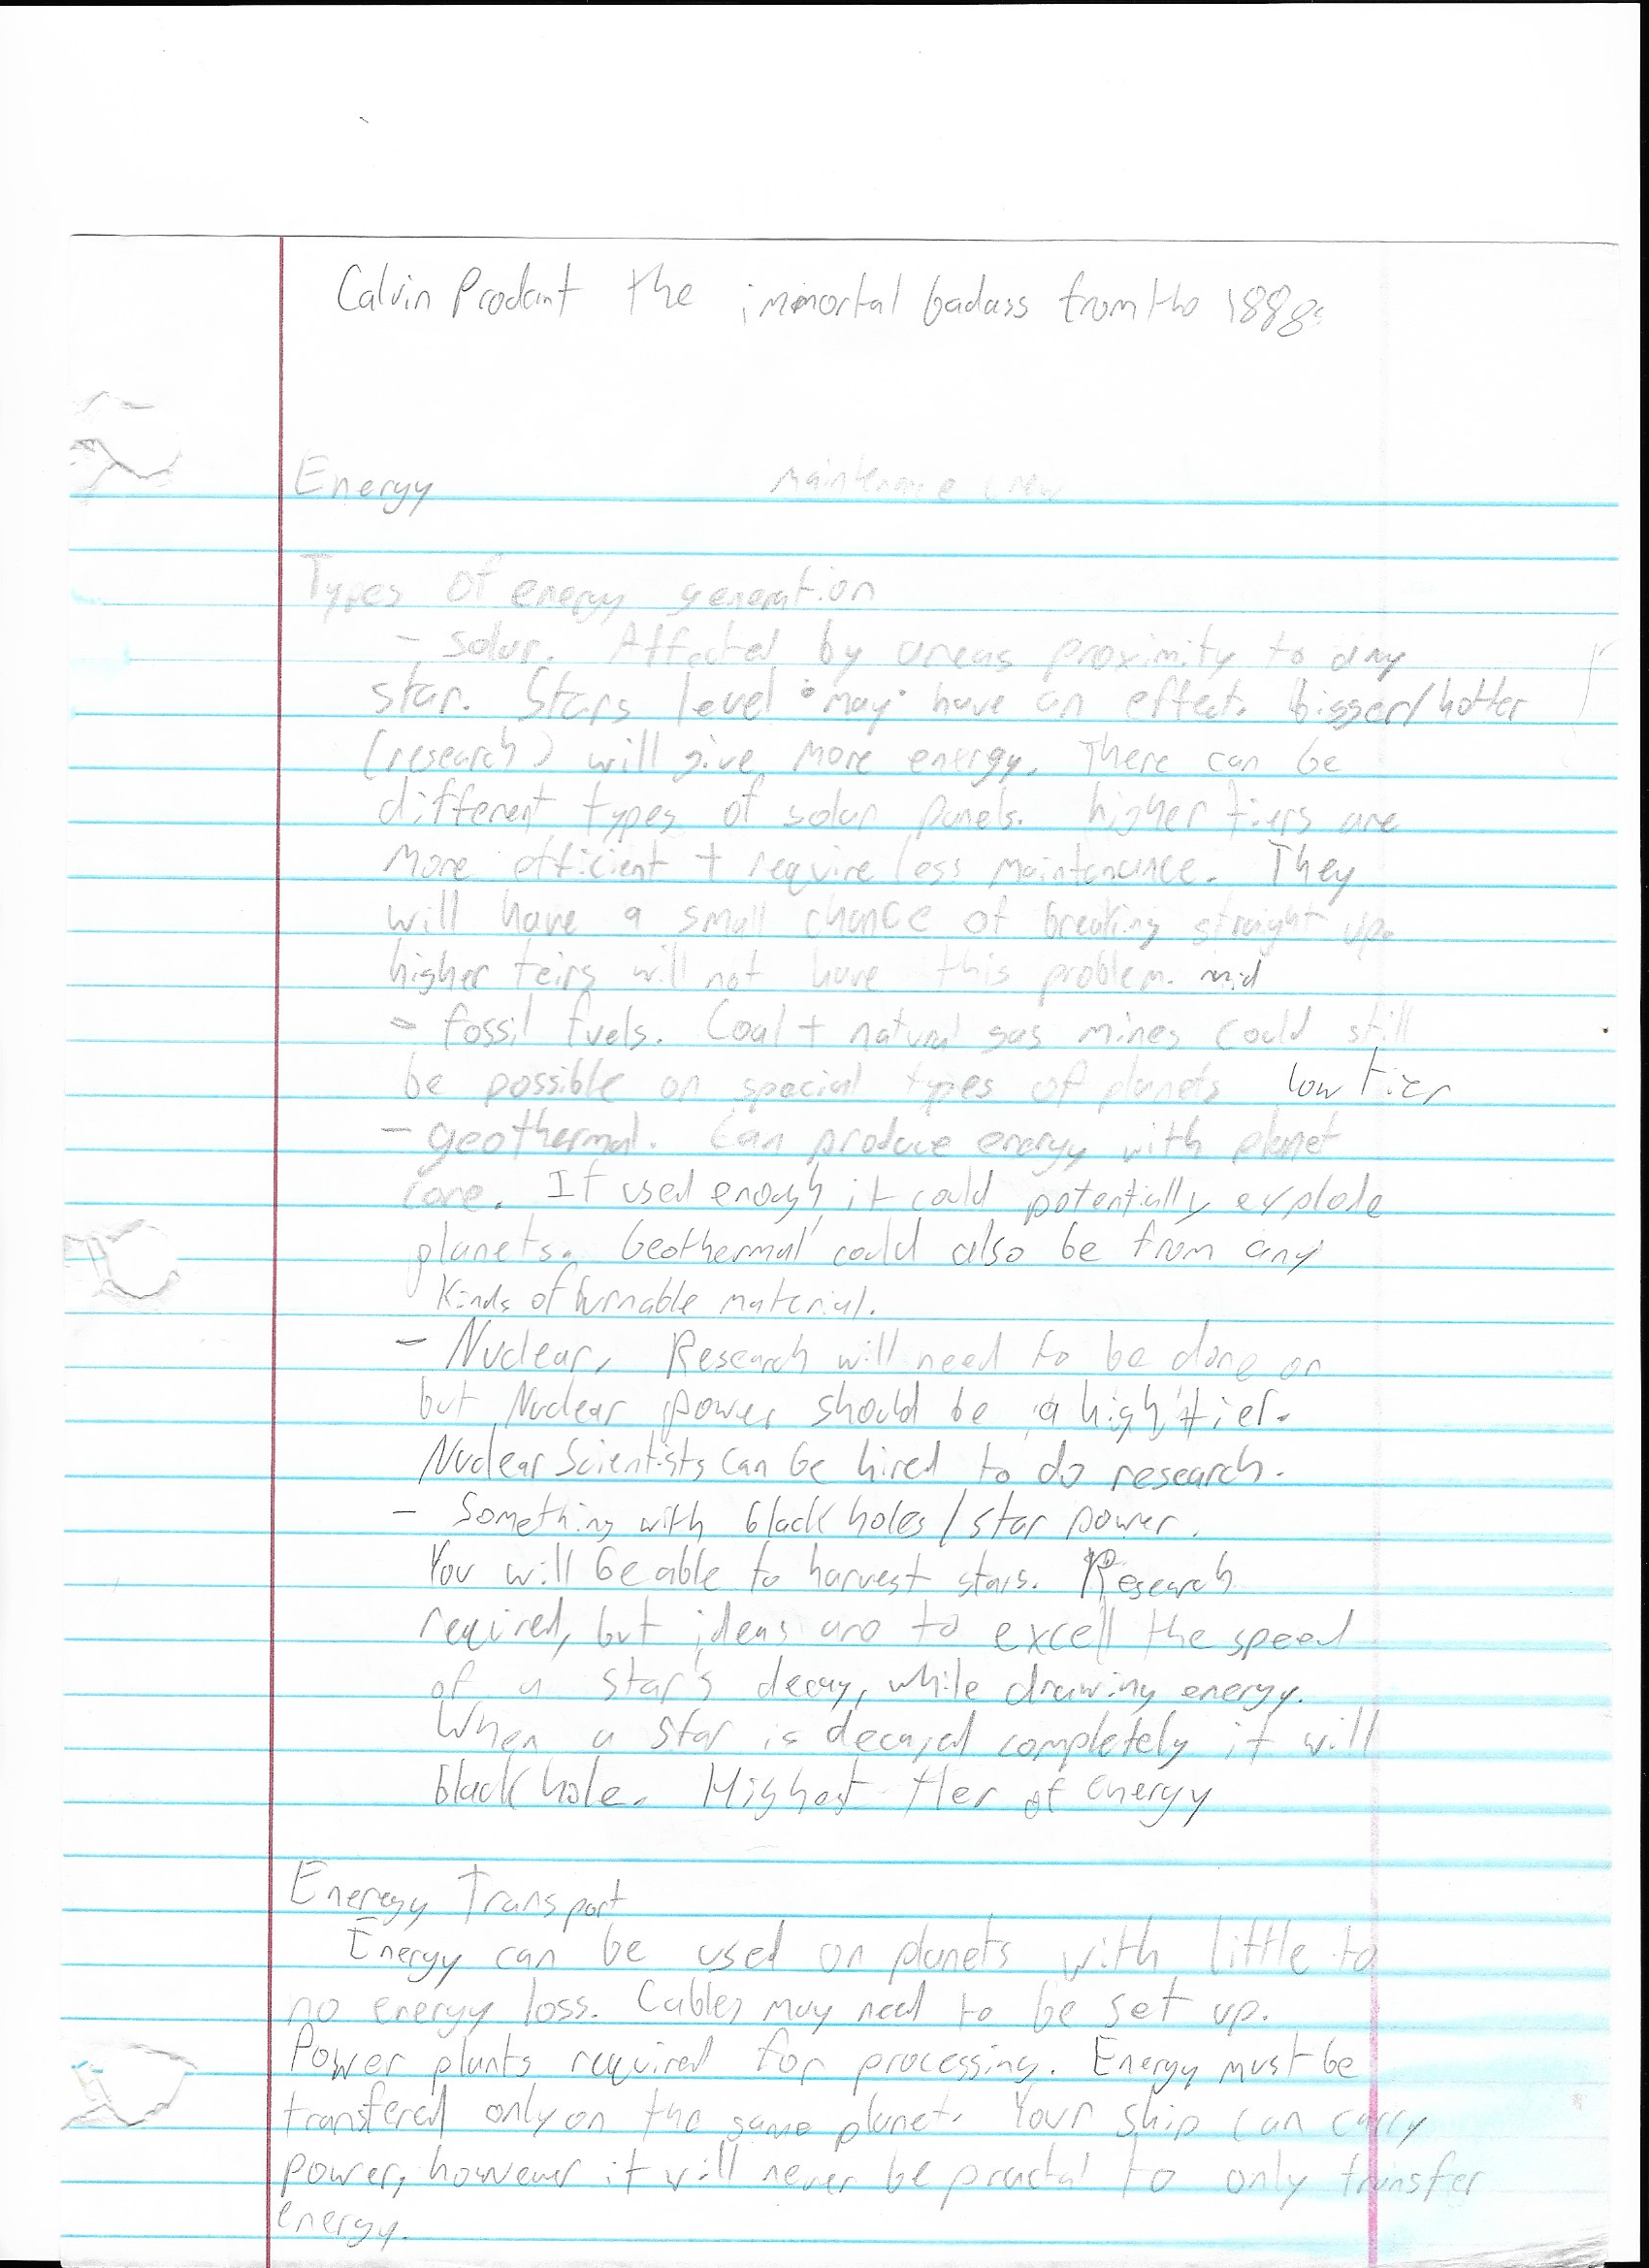 Calvin Prodant the immortal badass from the 1888s
Energy
Maintenance crew
Types of energy generation
- solar. Affected by areas proximity to any
star. Stars level "may" have an effect. bigger/hotter
(research) will give more energy. There can be
different types of solar panels. higher tiers are
more efficient + require less maintenance. They
will have a small chance of breaking straight up.
higher teirs will not have this problem. mid
- fossil fuels. Coal + natural gas mines could still
be possible on special types of planets low tier
- geothermal. Can produce energy with planet
core. If used enough it could potentially explode
planets. Geothermal could also be from any
kinds of burnable material.
- Nuclear, Research will need to be done on
but Nuclear power should be a high tier.
Nuclear Scientists can be hired to do research.
- Something with black holes / star power.
You will be able to harvest stars. Research
required, but ideas are to excell the speed
of a star's decay, while drawing energy.
When a star is decayed completely it will
black hole. Highest tier of energy
Energy Transport
Energy can be used on planets with little to
no energy loss. Cables may need to be set up.
Power plants required for processing. Energy must be
transfered only on the same planet. Your ship can carry
power, however it will never be practal to only transfer
energy.